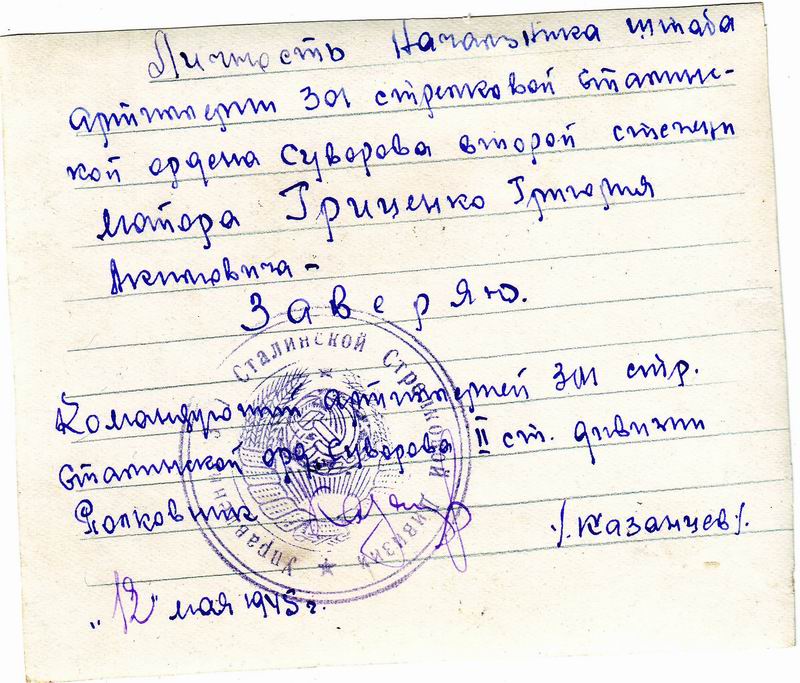 Личность Начальника штаба
артиллерии 301 стрелковой Сталинс-
кой ордена Суворова второй степени
майора Гриценко Григория
Акимовича –
Заверяю.
Командующий артиллерией 301 стр.
Сталинской орд. Суворова II ст. дивизии
Полковник /Казанцев/.
„12" мая 1945 г.
Управление 301 Сталинской Стрелковой Дивизии